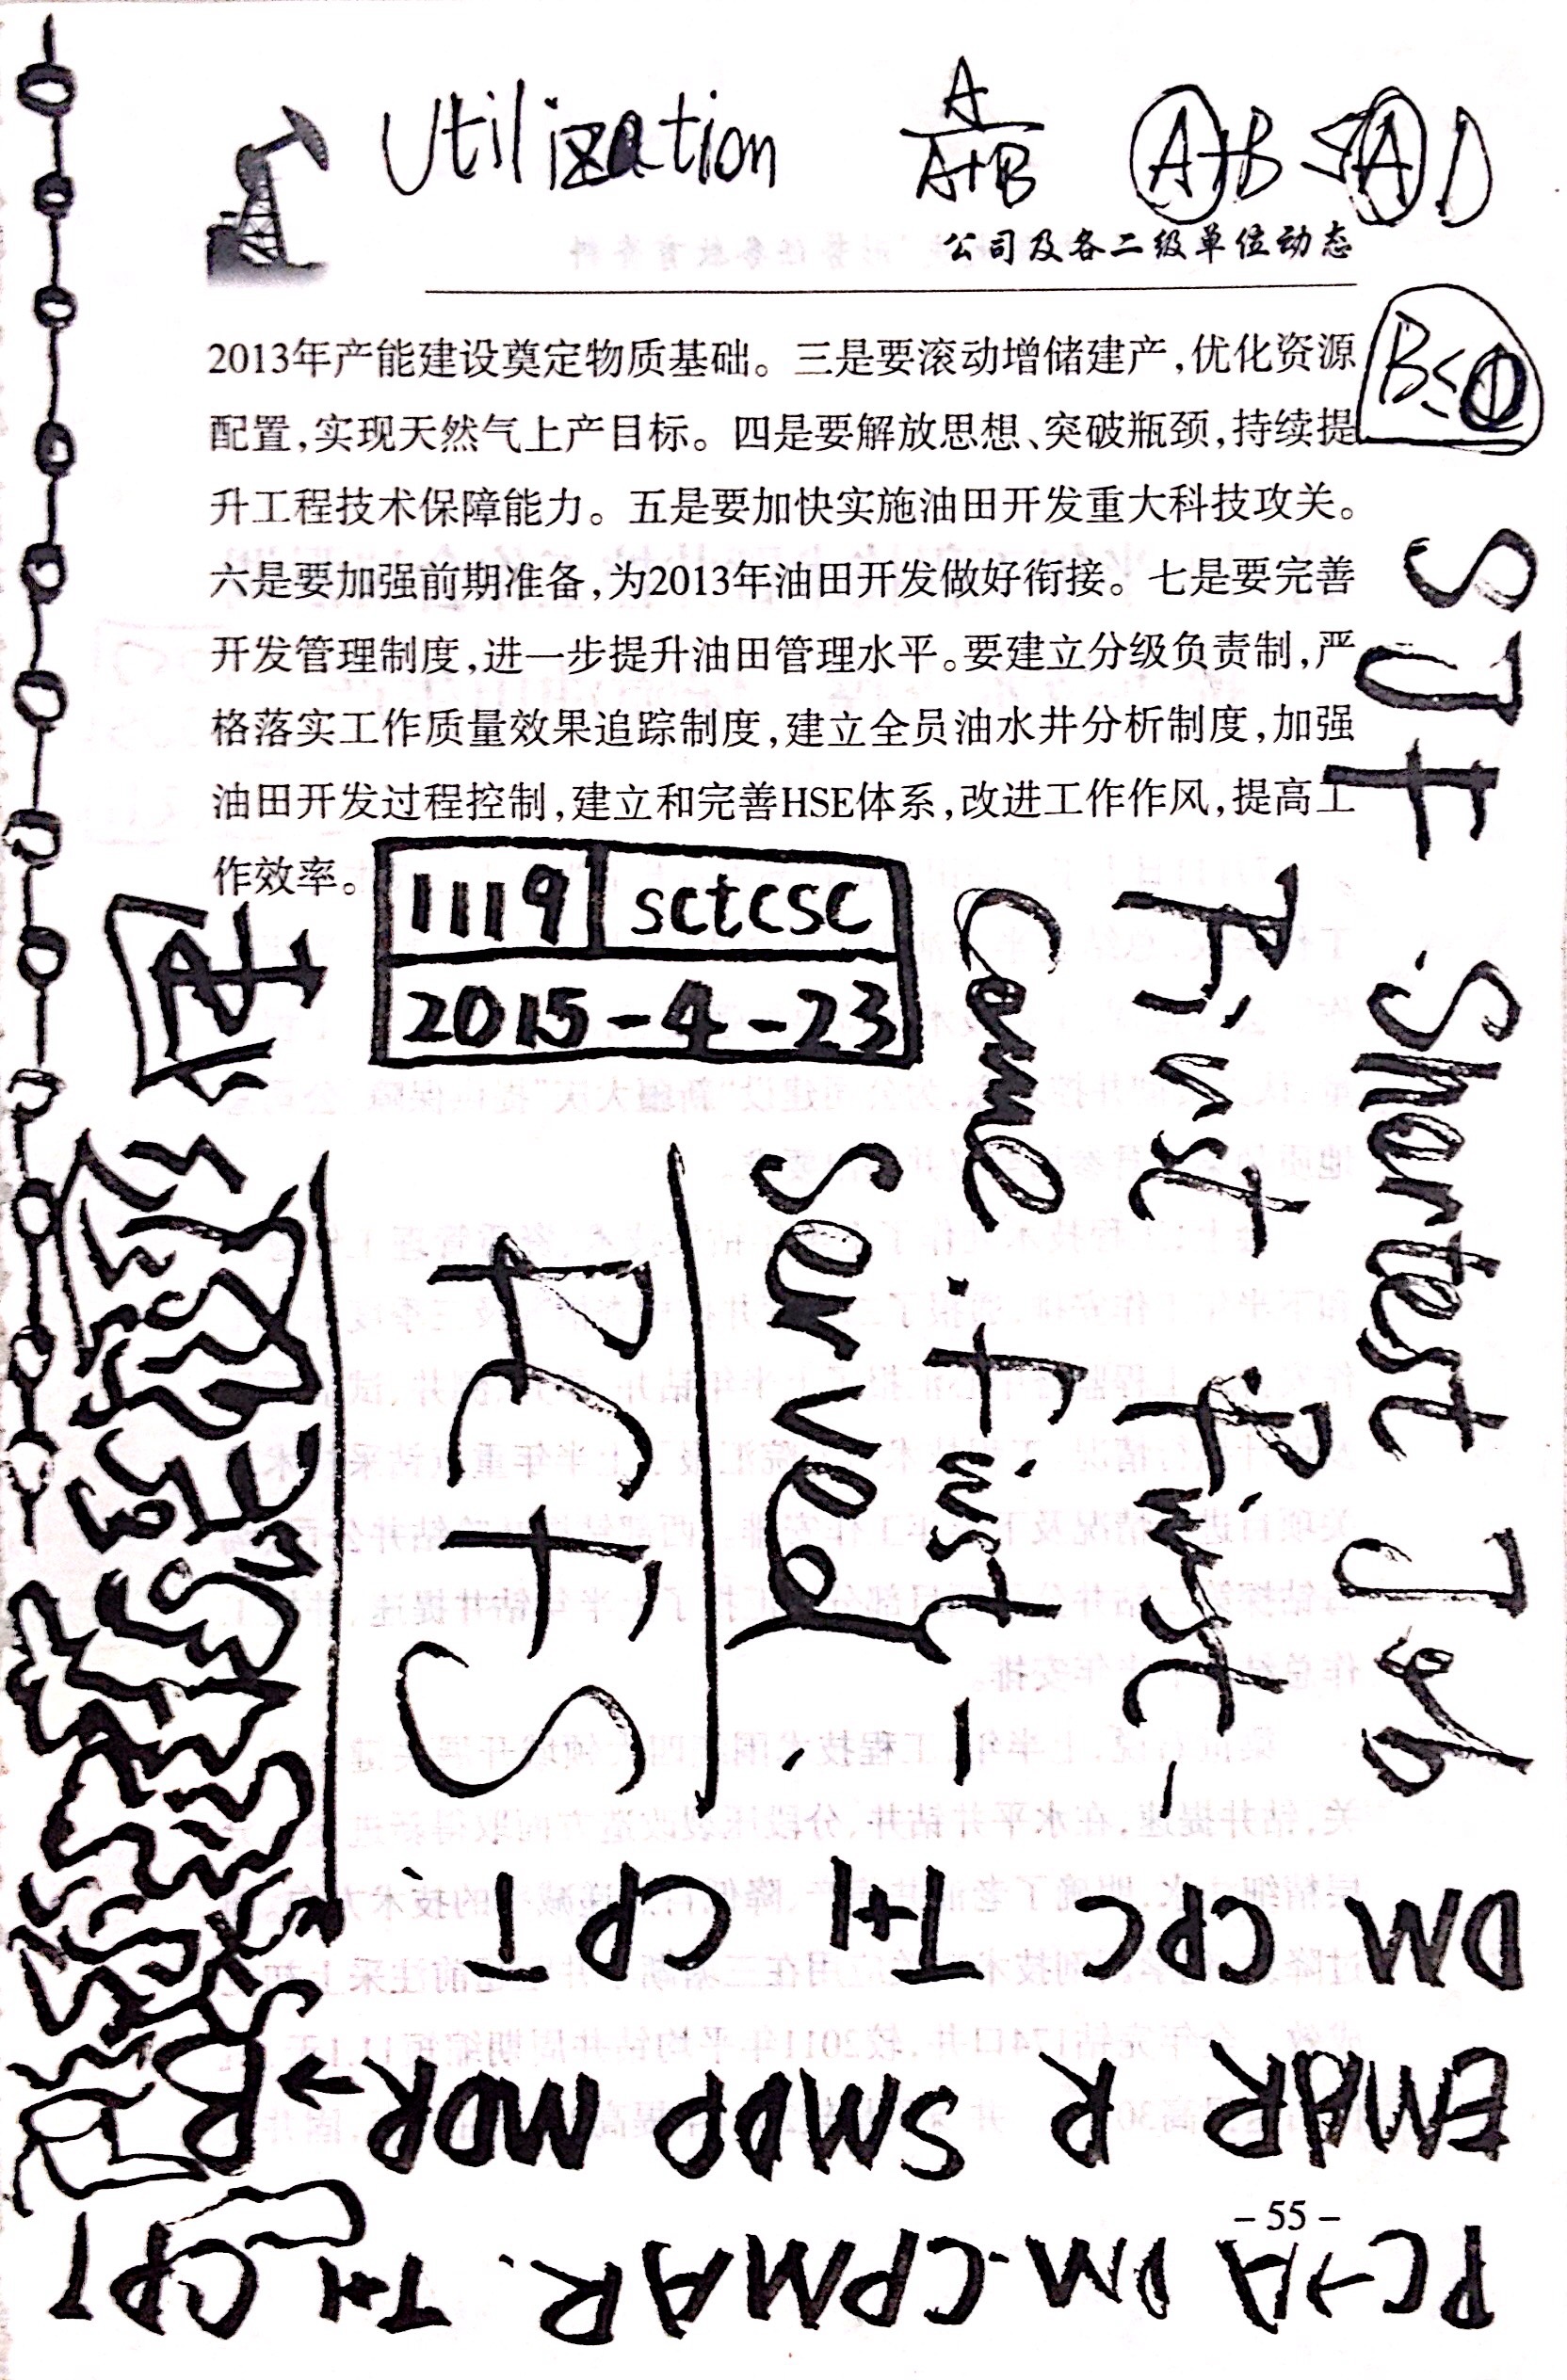 Utilization
A
A+B
A+B ≤ A D
公司及各二级单位动态
2013年产能建设奠定物质基础。三是要滚动增储建产,优化资源
B≤D
配置,实现天然气上产目标。四是要解放思想、突破瓶颈,持续提
升工程技术保障能力。五是要加快实施油田开发重大科技攻关。
六是要加强前期准备,为2013年油田开发做好衔接。七是要完善
开发管理制度,进一步提升油田管理水平。要建立分级负责制,严
格落实工作质量效果追踪制度,建立全员油水井分析制度,加强
油田开发过程控制,建立和完善HSE体系,改进工作作风,提高工
作效率。
1119 sctcsc
2015-4-23
SJF Shortest Job
First First -
Come . First -
Served .
FCFS
DM CPC T+1 CPT.
EMAR R SMDP MDR→R
PC→A DM.CPMAR. T+1 CPT
- 55 -